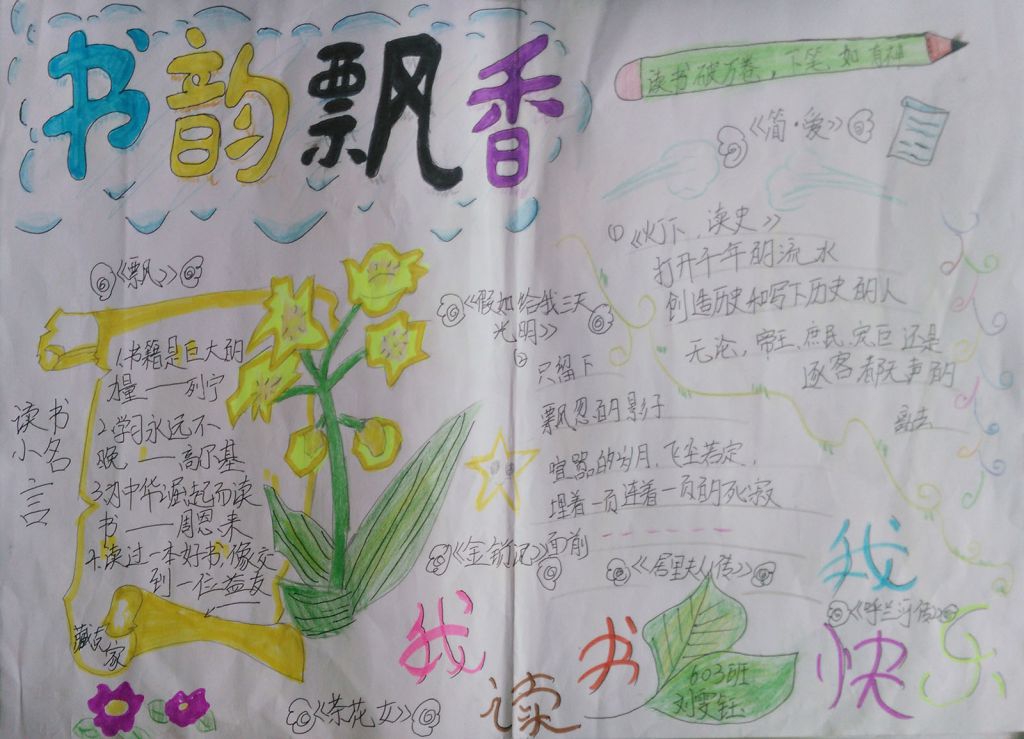 书韵飘香
读书破万卷，下笔如有神
《简·爱》
①《灯下读史》
打开千年的流水
创造历史和写下历史的人
无论，帝王、庶民、灾臣还是
逐客都无声的
离去
《飘》
1.书籍是巨大的
力量——列宁
2.学习永远不
晚——高尔基
3.为中华崛起而读
书——周恩来
4.读过一本好书，像交
到一位益友
藏克家
读书小名言
《假如给我三天
光明》
只留下
飘忽的影子
喧嚣的岁月，飞尘若定，
埋着一页连着一页的死寂
面前
《金银记》
《居里夫人传》
《呼兰河传》
《茶花女》
我读书
我快乐
603班
刘雯钰